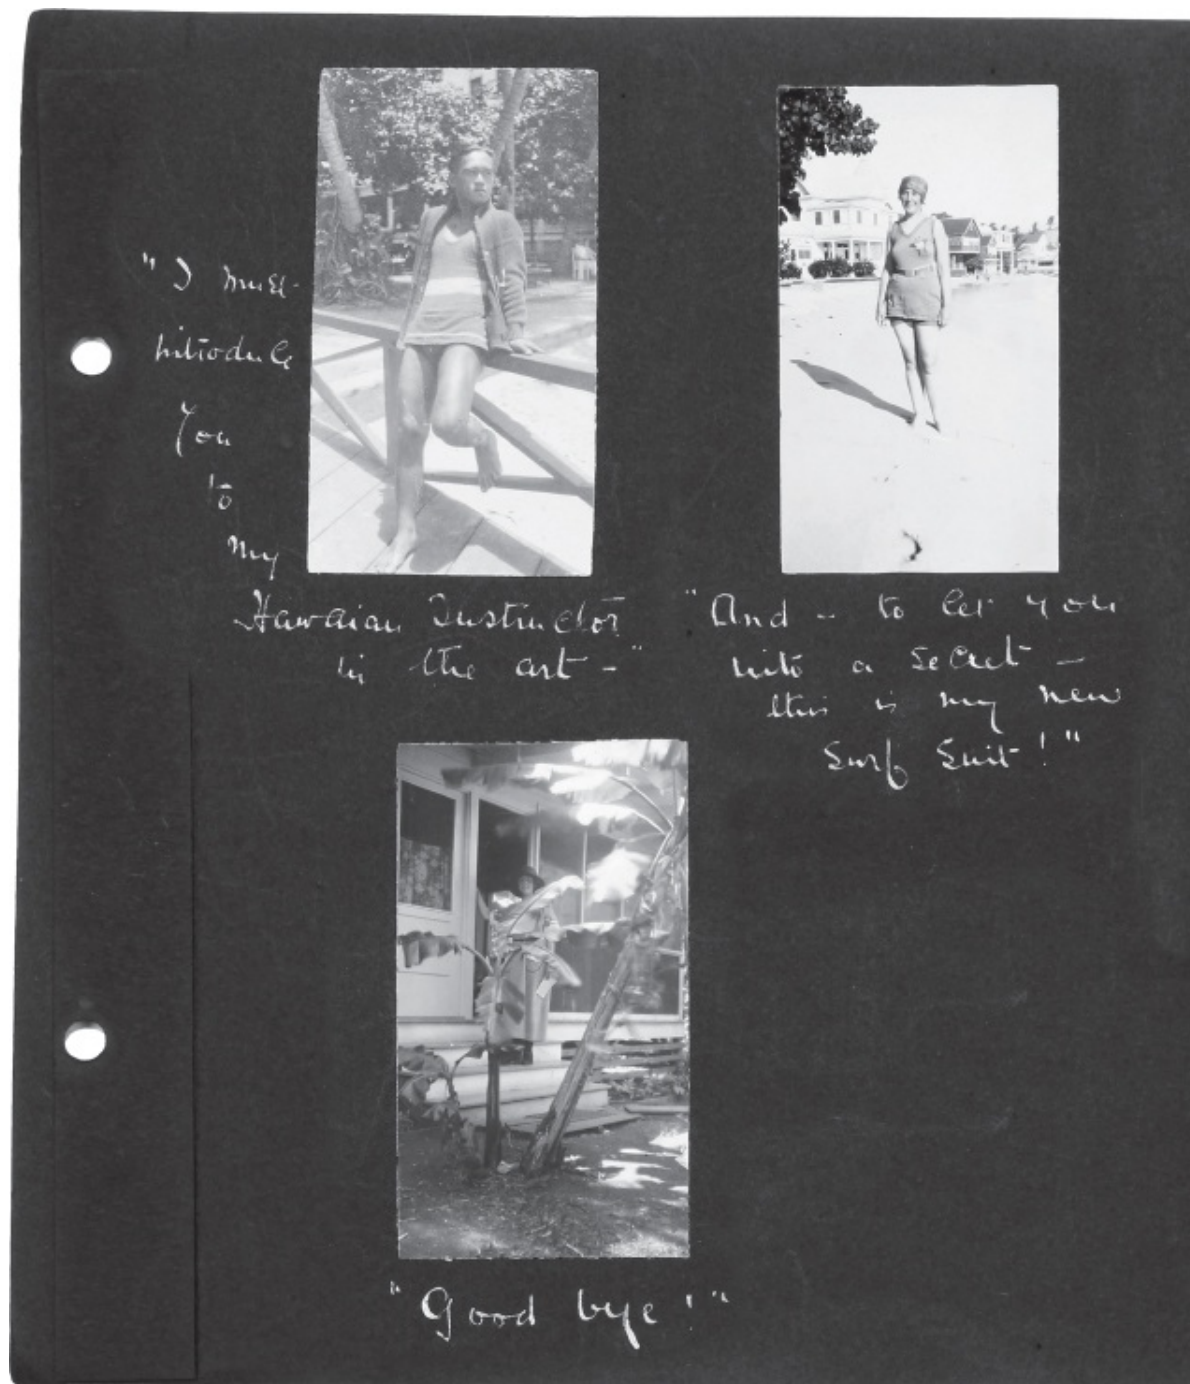 "I must
introduce
you
to
my
Hawaian Instructor
in the art - "
"And - to let you
into a secret -
this is my new
Surf Suit!"
"Good bye!"